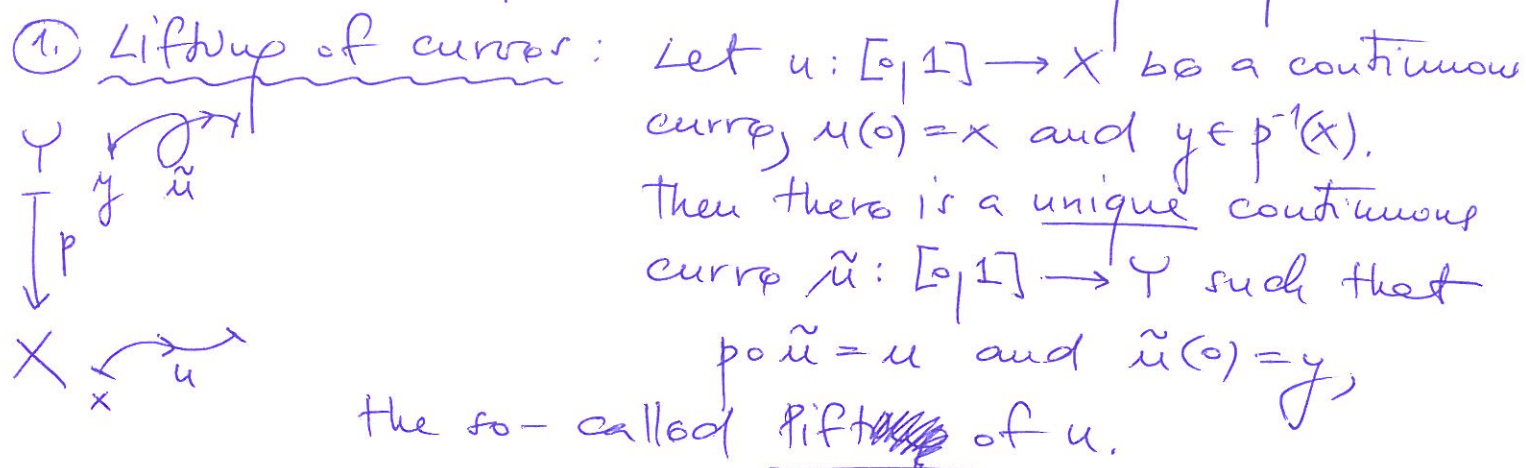 1. Lifting of curves: Let u: [0,1] → X be a continuous
curve, u(0) = x and y ∈ p⁻¹(x).
Then there is a unique continuous
curve ũ: [0,1] → Y such that
p∘ũ = u and ũ(0) = y,
the so-called lift of u.
Y y ũ
p
X x u